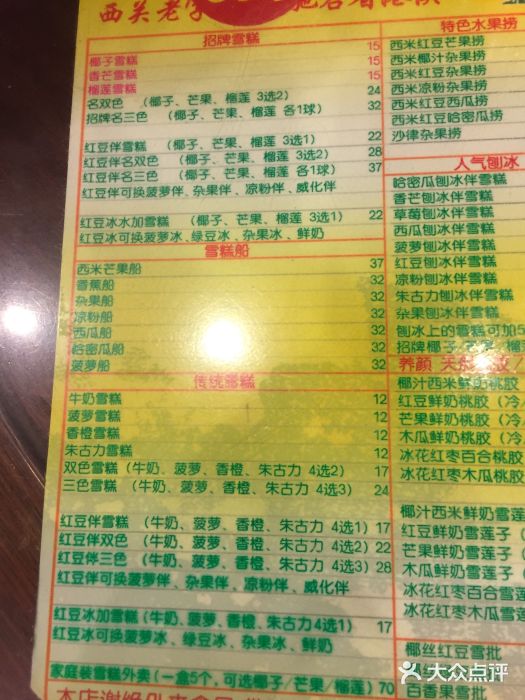 西关老字
招牌雪糕
椰子雪糕 15
香芒雪糕 15
榴莲雪糕 15
名双色 （椰子、芒果、榴莲 3选2） 24
招牌名三色 （椰子、芒果、榴莲 各1球） 32
红豆伴雪糕 （椰子、芒果、榴莲 3选1） 22
红豆伴名双色 （椰子、芒果、榴莲 3选2） 28
红豆伴名三色 （椰子、芒果、榴莲 各1球） 37
红豆伴可换菠萝伴、杂果伴、凉粉伴、威化伴
红豆冰水加雪糕 （椰子、芒果、榴莲 3选1） 22
红豆冰可换菠萝冰、绿豆冰、杂果冰、鲜奶
雪糕船
西米芒果船 37
香蕉船 32
杂果船 32
凉粉船 32
西瓜船 32
哈密瓜船 32
菠萝船 32
传统雪糕
牛奶雪糕 12
菠萝雪糕 12
香橙雪糕 12
朱古力雪糕 12
双色雪糕（牛奶、菠萝、香橙、朱古力 4选2） 17
三色雪糕（牛奶、菠萝、香橙、朱古力 4选3） 24
红豆伴雪糕 （牛奶、菠萝、香橙、朱古力 4选1） 17
红豆伴双色 （牛奶、菠萝、香橙、朱古力 4选2） 22
红豆伴三色 （牛奶、菠萝、香橙、朱古力 4选3） 28
红豆伴可换菠萝伴、杂果伴、凉粉伴、威化伴
红豆冰加雪糕 （牛奶、菠萝、香橙、朱古力4选1） 17
红豆冰可换菠萝冰、绿豆冰、杂果冰、鲜奶
家庭装雪糕外卖（一盒5个，可选椰子/芒果/榴莲） 70
本店谢绝外来食品
特色水果捞
西米红豆芒果捞
西米椰汁杂果捞
西米红豆杂果捞
西米凉粉杂果捞
西米红豆西瓜捞
西米红豆哈密瓜捞
沙律杂果捞
人气刨冰
哈密瓜刨冰伴雪糕
香芒刨冰伴雪糕
草莓刨冰伴雪糕
西瓜刨冰伴雪糕
菠萝刨冰伴雪糕
红豆刨冰伴雪糕
凉粉刨冰伴雪糕
朱古力刨冰伴雪糕
杂果刨冰伴雪糕
刨冰上的雪糕可加
招牌椰子/芒果/榴莲
养颜 天然
椰汁西米鲜奶桃胶
红豆鲜奶桃胶（冷/
芒果鲜奶桃胶（冷/
木瓜鲜奶桃胶（冷
冰花红枣百合桃胶
冰花红枣木瓜桃胶
椰汁西米鲜奶雪莲
红豆鲜奶雪莲子（
芒果鲜奶雪莲子（
木瓜鲜奶雪莲子（
冰花红枣百合雪莲
冰花红枣木瓜雪莲
椰丝红豆雪批
百香果雪
大众点评